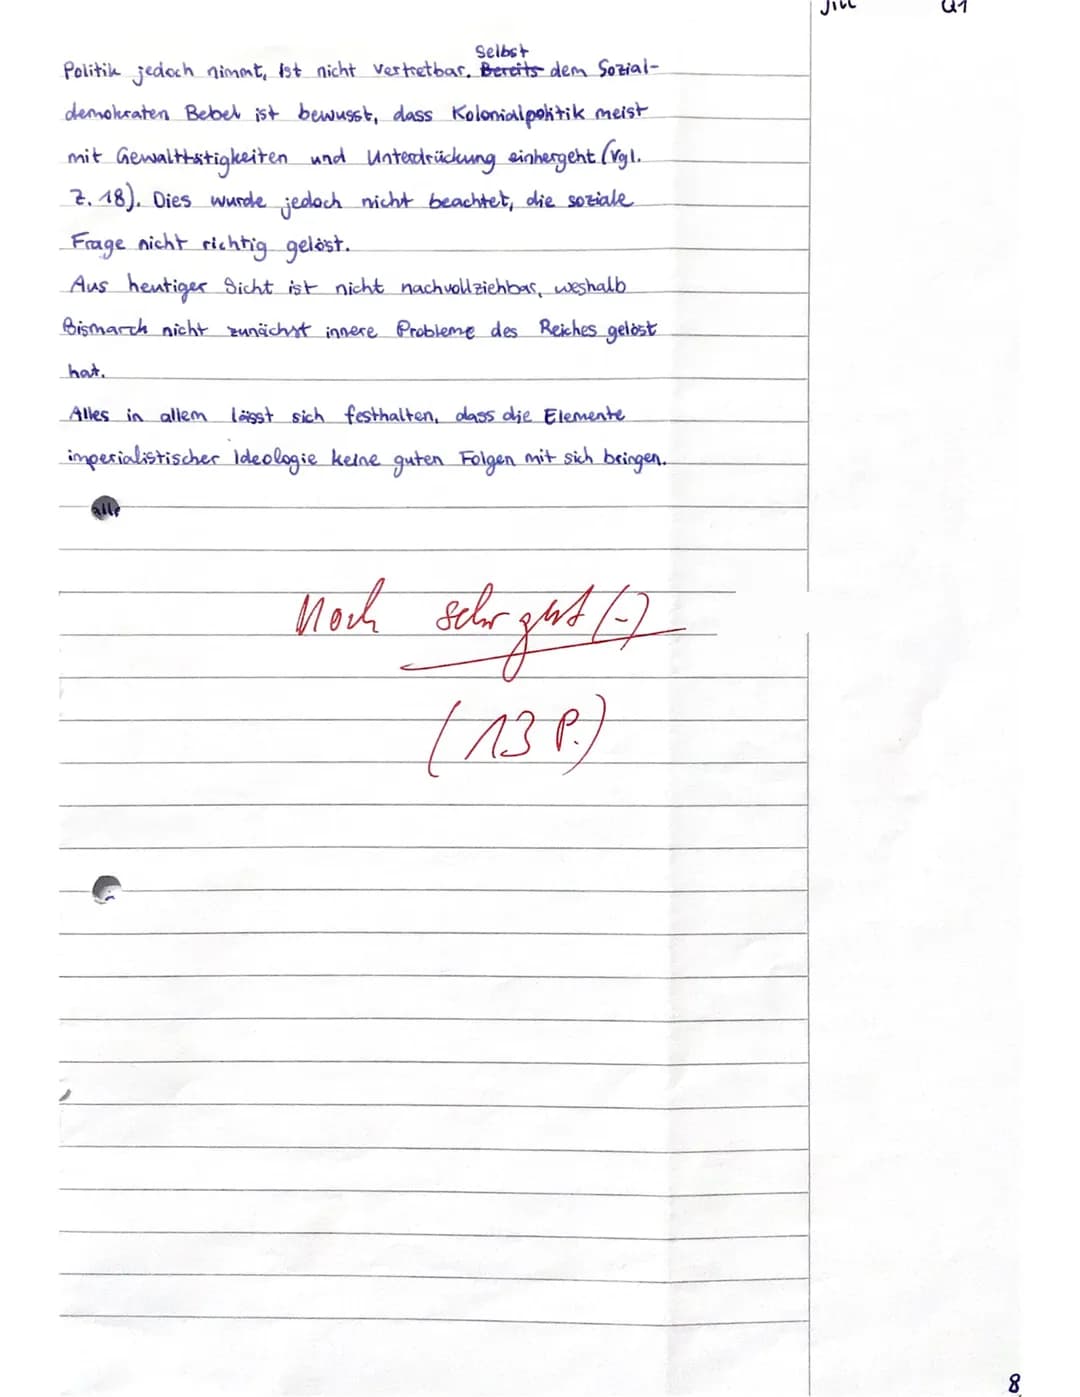 Jill Q1
Selbst
Politik jedoch nimmt, ist nicht vertretbar. Bereits dem Sozial-
demokraten Bebel ist bewusst, dass Kolonialpolitik meist
mit Gewalttätigkeiten und Unterdrückung einhergeht (Vgl.
Z. 18). Dies wurde jedoch nicht beachtet, die soziale
Frage nicht richtig gelöst.
Aus heutiger Sicht ist nicht nachvollziehbar, weshalb
Bismarck nicht zunächst innere Probleme des Reiches gelöst
hat.
Alles in allem lässt sich festhalten, dass die Elemente
imperialistischer Ideologie keine guten Folgen mit sich bringen.
alle
Noch sehr gut (-)
(13 P.)
8